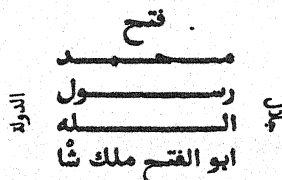 فتح
محمد
رسول
الله
ابو الفتح ملك شا
الدولة